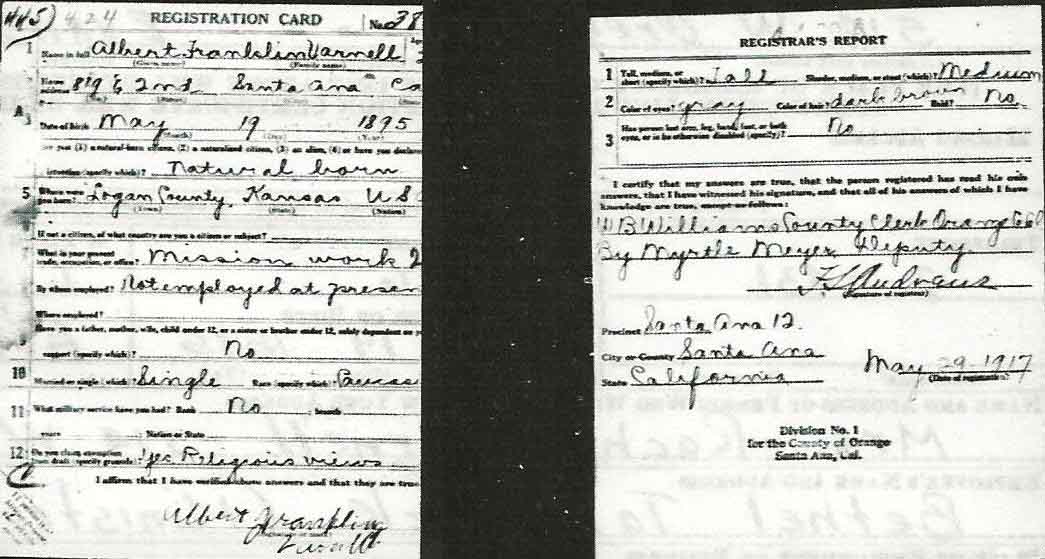 445) 424 REGISTRATION CARD No. 38
1 Name in full Albert Franklin Varnell
(Given name) (Family name)
Home address 819 E 2nd Santa Ana Ca
(No.) (Street)
3 Date of birth May 19 1895
(Month) (Day) (Year)
Are you (1) a natural-born citizen, (2) a naturalized citizen, (3) an alien, (4) or have you declared
intention (specify which)? Natural born
5 Where were you born? Logan County Kansas US
(Town) (State) (Nation)
If not a citizen, of what country are you a citizen or subject?
What is your present trade, occupation, or office? Mission work
By whom employed? Not employed at presen
Where employed?
Have you a father, mother, wife, child under 12, or a sister or brother under 12, solely dependent on
support (specify which)? No
10 Married or single (which)? Single Race (specify which)? Caucas
11 What military service have you had? Rank No branch
years ; Nation or State
12 Do you claim exemption from draft (specify grounds)? Yes Religious views
I affirm that I have verified above answers and that they are true
Albert Franklin
REGISTRAR'S REPORT
1 Tall, medium, or short (specify which)? Tall Slender, medium, or stout (which)? Medium
2 Color of eyes? gray Color of hair? dark brown Bald? No.
3 Has person lost arm, leg, hand, foot, or both eyes, or is he otherwise disabled (specify)? No
I certify that my answers are true, that the person registered has read his own
answers, that I have witnessed his signature, and that all of his answers of which I have
knowledge are true, except as follows:
W B Williams County Clerk Orange Co Cal
By Myrtle Meyer, Deputy.
(Signature of registrar)
Precinct Santa Ana 12.
City or County Santa Ana
State California May 29-1917
(Date of registration)
Division No. 1
for the County of Orange
Santa Ana, Cal.